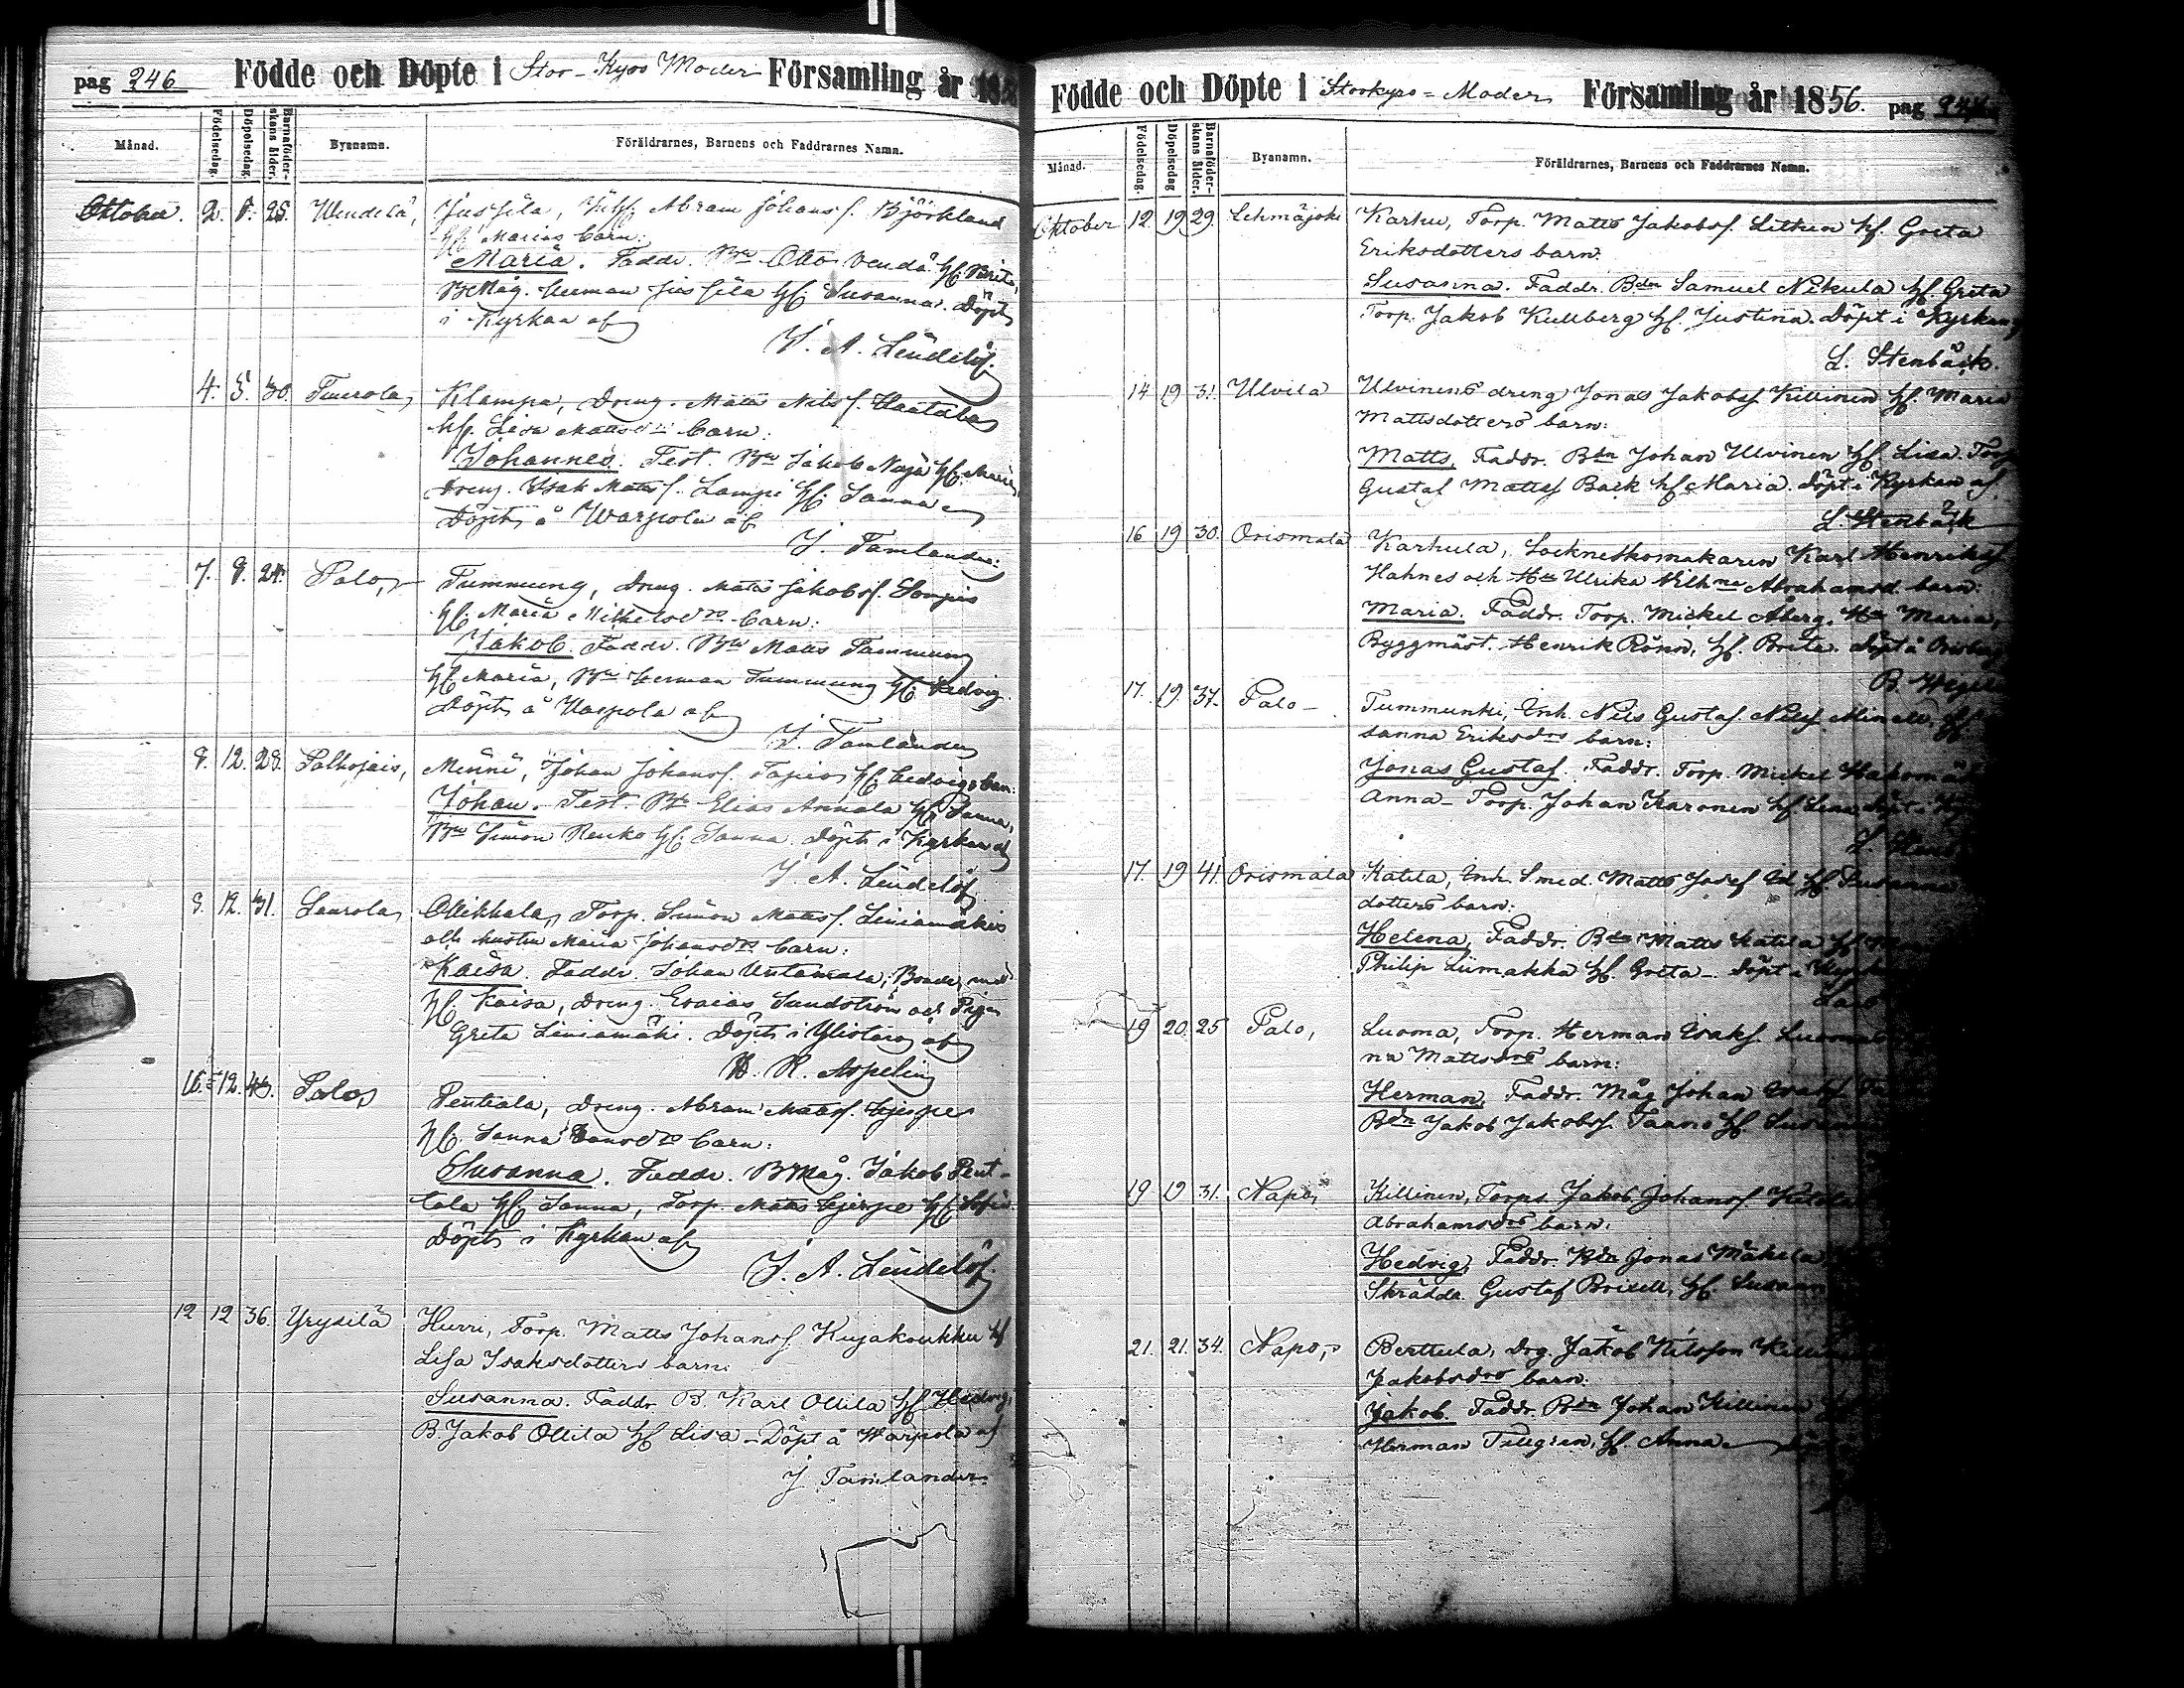 pag 246 Födde och Döpte i Stor-Kyro Moder Församling år 185
Månad. Födelsedag. Döpelsedag. Barnaföderskans ålder. Byanamn. Föräldrarnes, Barnens och Faddrarnes Namn.
Oktober. 2. 5. 25. Wendelä, Jussila, Abram Johansf. Björklund
hf. Marias barn:
Maria. Faddr. Bn Otto Vendä hf. Brita,
BMåg. Herman Jussila hf. Susanna. Döpt
i Kyrkan af
J. A. Lindelöf.
4. 5. 30. Tuurola, Klampa, Dreng. Matts Nilsf. Haatala
hf. Lisa Mattsdrs barn:
Johannes. Test. Bn Jakob Naja hf. Maria,
Dreng. Isak Mattsf. Lampi hf. Sanna
Döpt å Warpola af
J. Tamlander.
7. 8. 24. Palo, Tummung, Dreng. Matts Jakobsf. Sompis
hf. Maria Mikelsdrs barn:
Jakob. Faddr. Bn Matts Tammung
hf. Maria, Bn Herman Tummung hf. Hedvig
Döpt å Warpola af
J. Tamlander
9. 12. 28. Palhojais, Minni, Johan Johansf. Tapios hf. Hedvigs barn:
Johan. Test. Bn Elias Annala hf. Sanna,
Bn Simon Renko hf. Sanna. Döpt i Kyrkan af
J. A. Lindelöf
9. 12. 31. Laurola, Ollikkala, Torp. Simon Mattsf. Liniamäkis
och hustru Maria Johansdrs barn:
Kaisa. Faddr. Johan Untamala, Bonde, med
hf. Kaisa, Dreng. Esaias Sundström och Pigan
Greta Liniamäki. Döpt i Ylistaro af
R. Aspelin
10. 12. 43. Palo, Penttala, Dreng. Abram Mattsf. Hjerpes
hf. Sanna drs barn:
Susanna. Faddr. BMåg. Jakob Pent-
tala hf. Sanna, Torp. Matts Hjerpe hf. Sofia.
Döpt i Kyrkan af
J. A. Lindelöf.
12 12 36. Yrysilä Hurri, Torp. Matts Johansf. Kujakoukku hf
Lisa Isaksdotters barn:
Susanna. Faddr. B. Karl Ollila hf Hedvig,
B. Jakob Ollila hf Lisa - Döpt å Warpola af
J Tamlander.
Födde och Döpte i Storkyro=Moder Församling år 1856. pag
Månad. Födelsedag. Döpelsedag Barnaföderskans ålder. Byanamn. Föräldrarnes, Barnens och Faddrarnes Namn.
Oktober 12. 19 29. Lehmäjoki Karhu, Torp. Matts Jakobsf. Litkin hf. Greta
Eriksdotters barn.
Susanna. Faddr. Bdn Samuel Nikula hf. Greta
Torp. Jakob Kullberg hf. Justina. Döpt i Kyrkan
L. Stenbäck.
14 19 31. Ulvila Ulvinens dreng Jonas Jakobsf Killinen hf. Maria
Mattsdotters barn:
Matts, Faddr. Bdn Johan Ulvinen hf. Lisa. Torp
Gustaf Mattsf Back hf Maria. Döpt i Kyrkan af
L. Stenbäck
16 19 30. Orismala Karhula, Socknetkomakaren Karl Henriksf
Hahnes och Hu Ulrika Vilhna Abrahamsd. barn:
Maria. Faddr. Torp. Mickel Åberg, Hu Maria,
Byggmäst. Henrik Rönn, hf. Brita. Döpt å
B.
17. 19. 37. Palo - Tummunki, Inh. Nils Gustaf Nilsf
Sanna Eriksdrs barn:
Jonas Gustaf. Faddr. Torp. Mickel
Anna - Torp. Johan Karonen hf. Lisa Döpt i
L.
17. 19 41. Orismala Katila, Inh. Smed. Matts Josef hf. Susanna
dotters barn:
Helena, Faddr. Bdn Matts Katila hf
Philip Liimakka hf. Greta - Döpt i Kyrk
19 20. 25 Palo, Luoma, Torp. Herman Isaksf. Luoma
na Mattsdrs barn:
Herman, Faddr. Måg Johan Isaksf
Bdn Jakob Jakobsf. Taans hf
19 19 31. Napo, Killinen, Torps Jakob Johansf.
Abrahamsdrs barn.
Hedvig, Faddr. Bdn Jonas Mäkela
Skrädda Gustaf Brindt, hf. Susann
21. 21. 34. Napo, Berttula, Drg. Jakob Nilsson
Jakobsdrs barn:
Jakob. Faddr. Bdn Johan Killinen
Herman Tillgren, hf. Anna